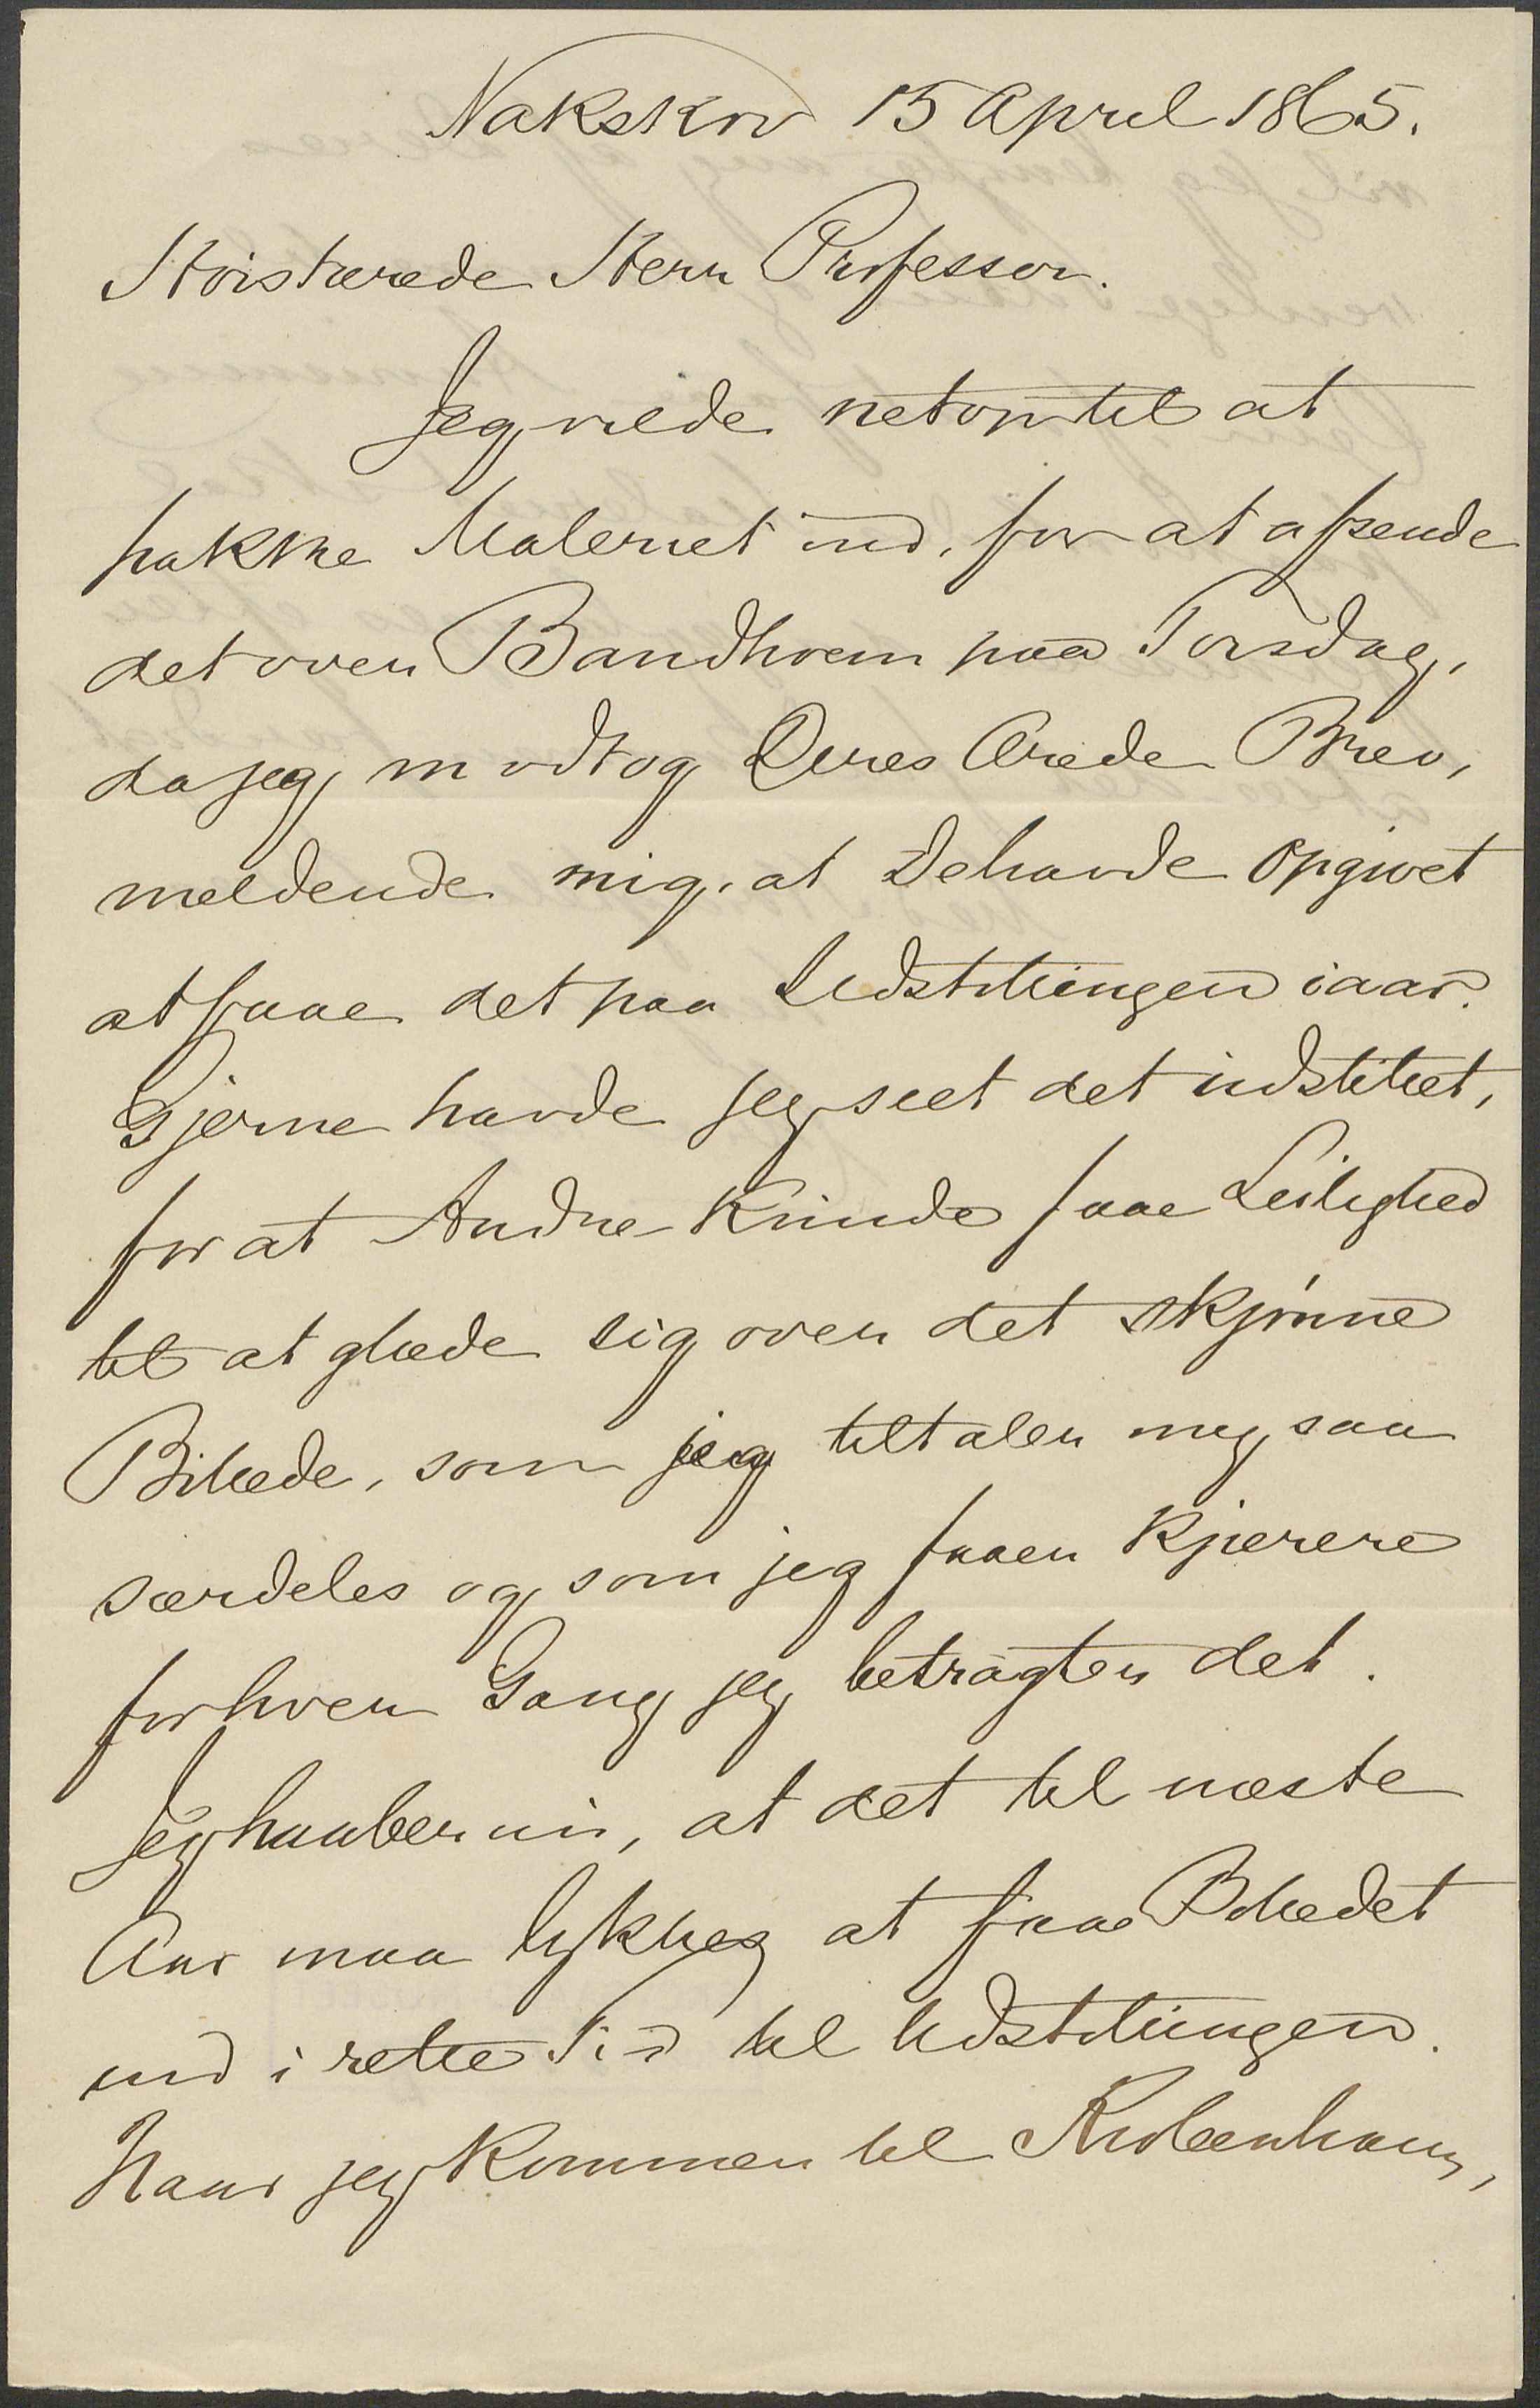 Nakskov 15 April 1865.
Høistærede Herr Professor.
Jeg vilde netop til at
pakke Maleriet ind, for at afsende
det over Bandholm paa Torsdag,
da jeg modtog Deres Ærede Brev,
meldende mig, at De havde opgivet
at faae det paa Udstillingen iaar.
Gjerne havde jeg seet det udstillet,
for at Andre kunde faae Leilighed
til at glæde sig over det skjønne
Billede, som jeg tiltaler mig saa
særdeles og som jeg faaer kjærere
for hver Gang jeg betragter det.
Jeg haaber nu, at det til næste
Aar maa lykkes at faae Billedet
ind i rette Tid til Udstillingen.
Naar jeg kommer til Kiøbenhavn,